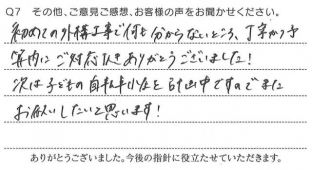 Q7 その他、ご意見ご感想、お客様の声をお聞かせください。
初めての外構工事で何も分からないところ、丁寧かつ
算内にご対応頂きありがとうございました!
次は子どもの自転車小屋を計画中ですのでまた
お願いしたいと思います!
ありがとうございました。今後の指針に役立たせていただきます。